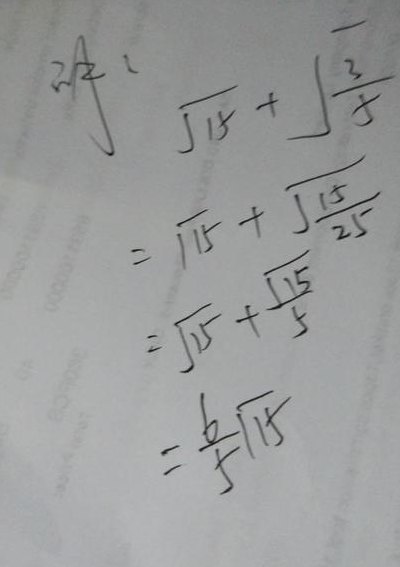 解:
√15 + √3/5
= √15 + √15/25
= √15 + √15/5
= 6/5√15